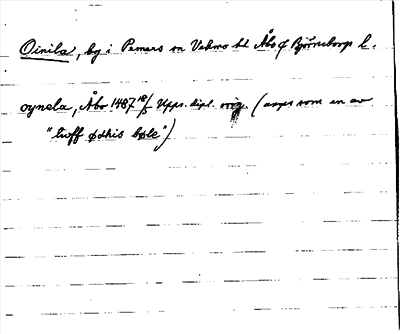 Oinila, by i Pemars sn Vehmo hd Åbo o Björneborgs l.
oynela, Åbo 1487 18/5 Upps. dipl. orig. (anges som en av
"twff ødhis bøle")